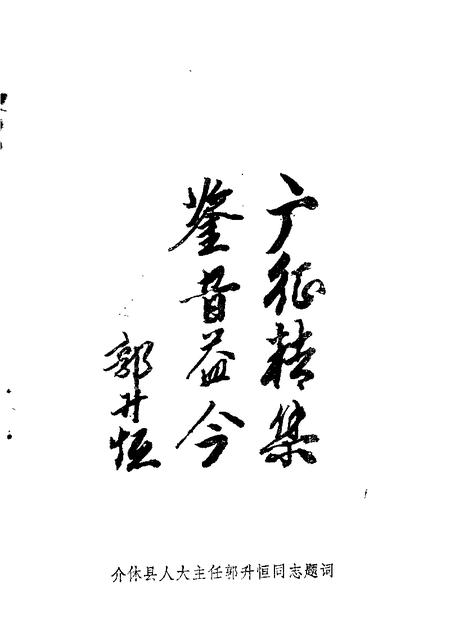 广征精集
鉴昔益今
郭升恒
介休县人大主任郭升恒同志题词